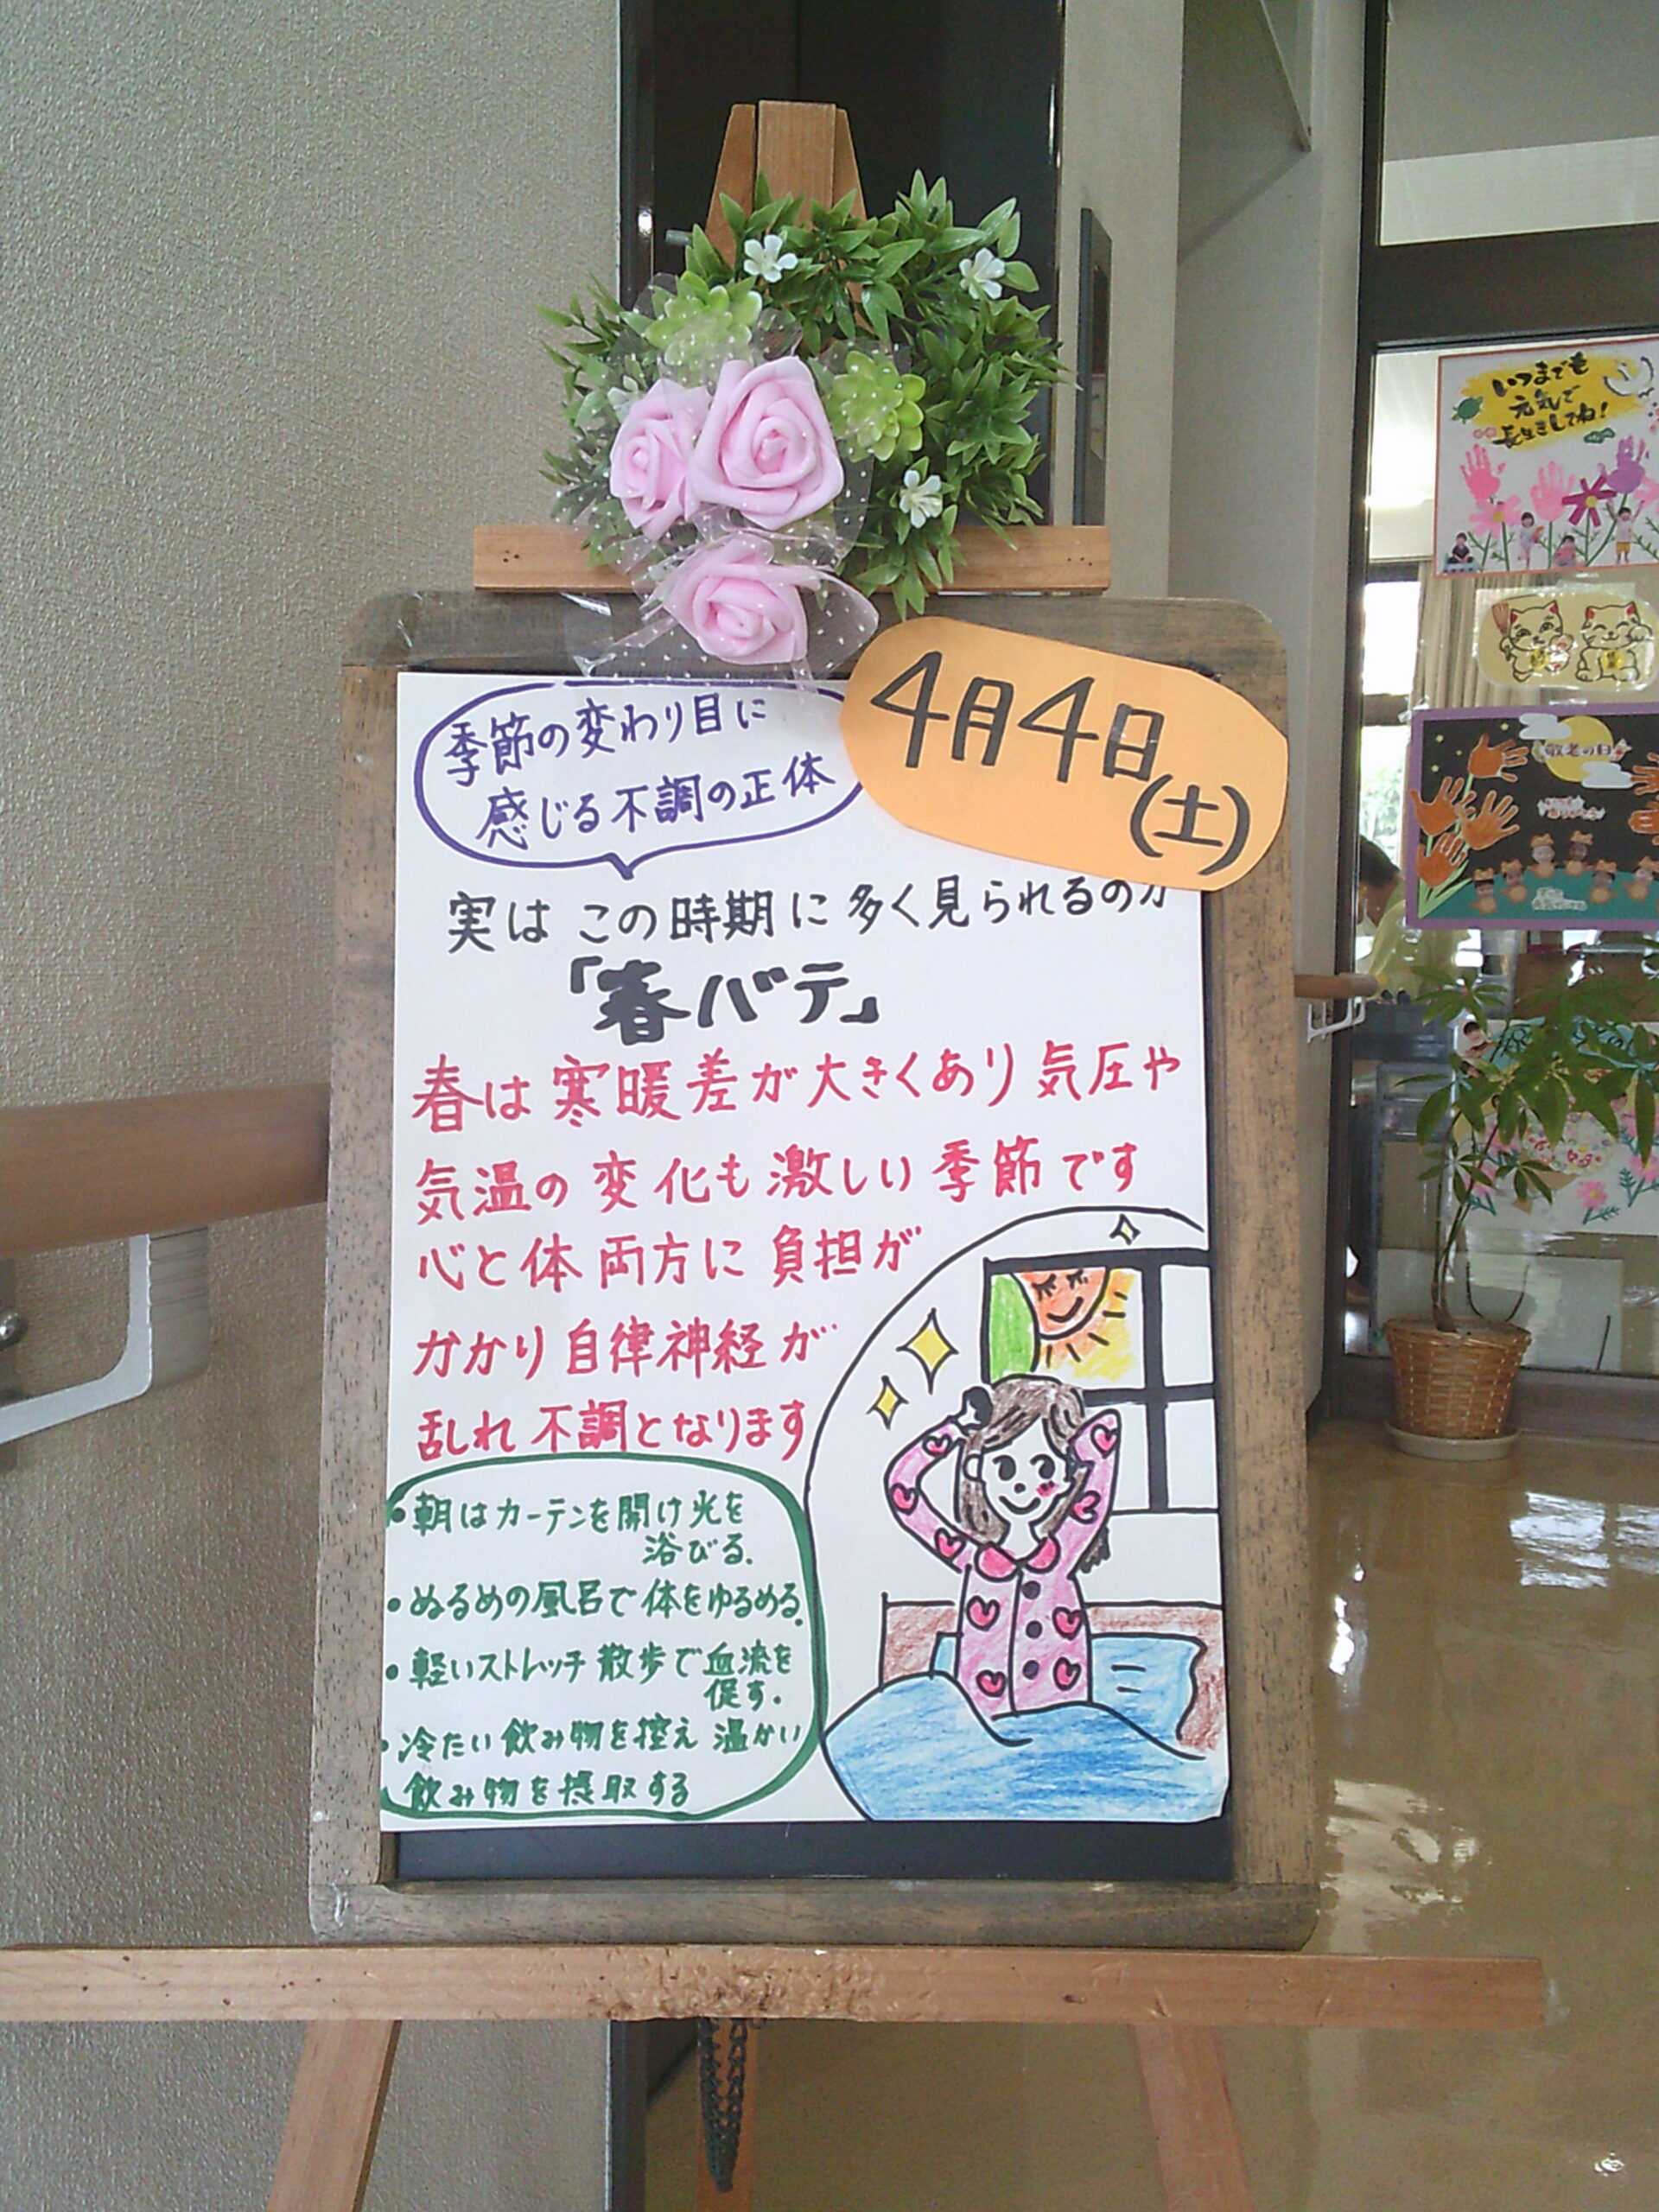 季節の変わり目に
感じる不調の正体
4月4日
(土)
実は この時期に多く見られるのが
「春バテ」
春は寒暖差が大きくあり気圧や
気温の変化も激しい季節です
心と体両方に負担が
かかり自律神経が
乱れ不調となります
・朝はカーテンを開け光を
浴びる.
・ぬるめの風呂で体をゆるめる.
・軽いストレッチ散歩で血流を
促す.
・冷たい飲み物を控え 温かい
飲み物を摂取する
いつまでも
元気で
長生きしてね!
敬老の日